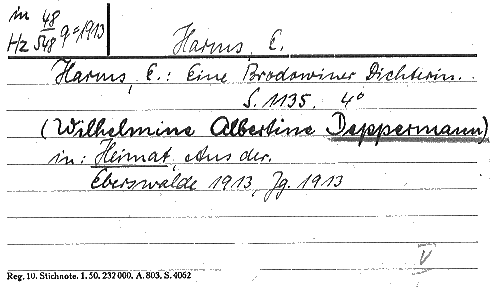 in 48
Hz 548 q° 1913
Harms, E.
Harms, E.: Eine Brodowiner Dichterin.
S. 1135. 4°
(Wilhelmine Albertine Deppermann)
in: Heimat, Aus der.
Eberswalde 1913, Jg. 1913
V
Reg. 10. Stichnote. 1. 50. 232 000. A. 803. S. 4062